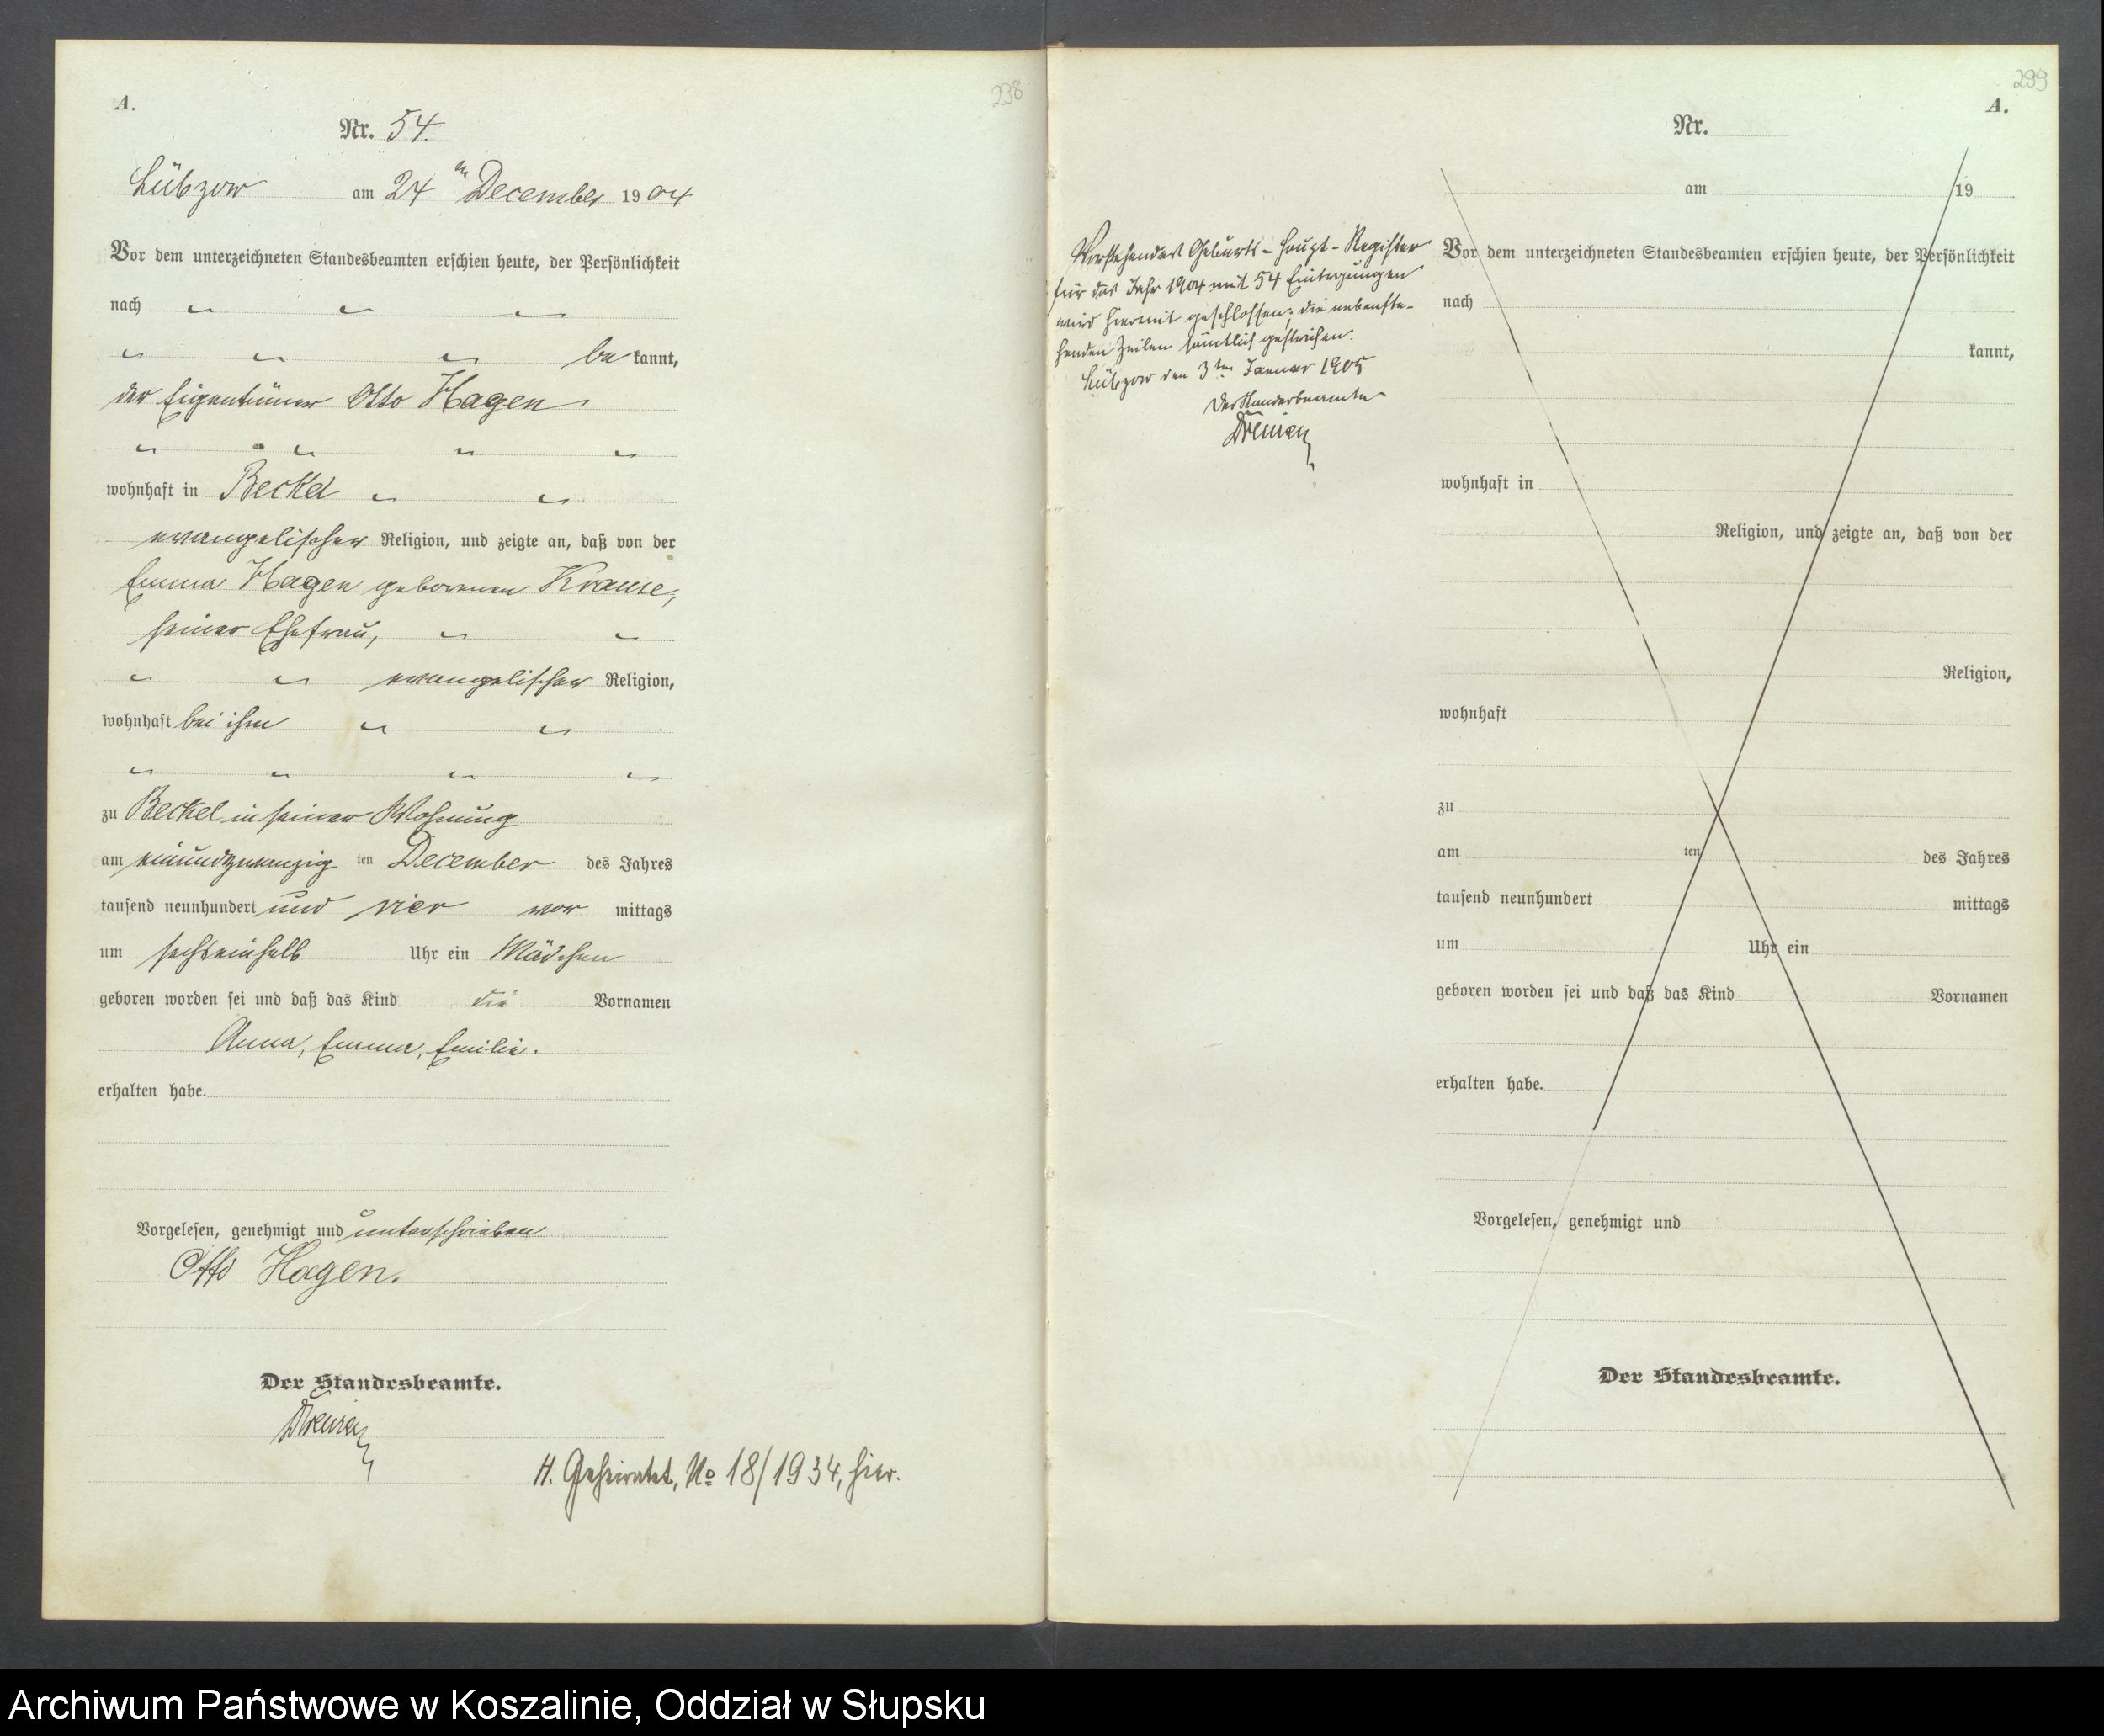 298
A.
Nr. 54.
Lübzow am 24ten December 1904
Vor dem unterzeichneten Standesbeamten erschien heute, der Persönlichkeit
nach
be kannt,
der Eigentümer Otto Hagen
wohnhaft in Beckel
evangelischer Religion, und zeigte an, daß von der
Emma Hagen geborenen Krause,
seiner Ehefrau,
evangelischer Religion,
wohnhaft bei ihm
zu Beckel in seiner Wohnung
am einundzwanzig ten December des Jahres
tausend neunhundert und vier vor mittags
um sechseinhalb Uhr ein Mädchen
geboren worden sei und daß das Kind die Vornamen
Anna, Emma, Emilie.
erhalten habe.
Vorgelesen, genehmigt und unterschrieben
Otto Hagen.
Der Standesbeamte.
H. Geheiratet, No 18/1934, hier.
299
A.
Vorstehendes Geburts-Haupt-Register
für das Jahr 1904 mit 54 Eintragungen
wird hiermit geschlossen; die nebenste-
henden Zeilen sämtlich gestrichen.
Lübzow den 3ten Januar 1905
Der Standesbeamte
Nr.
am 19
Vor dem unterzeichneten Standesbeamten erschien heute, der Persönlichkeit
nach
kannt,
wohnhaft in
Religion, und zeigte an, daß von der
Religion,
wohnhaft
zu
am ten des Jahres
tausend neunhundert mittags
um Uhr ein
geboren worden sei und daß das Kind Vornamen
erhalten habe.
Vorgelesen, genehmigt und
Der Standesbeamte.
Archiwum Państwowe w Koszalinie, Oddział w Słupsku